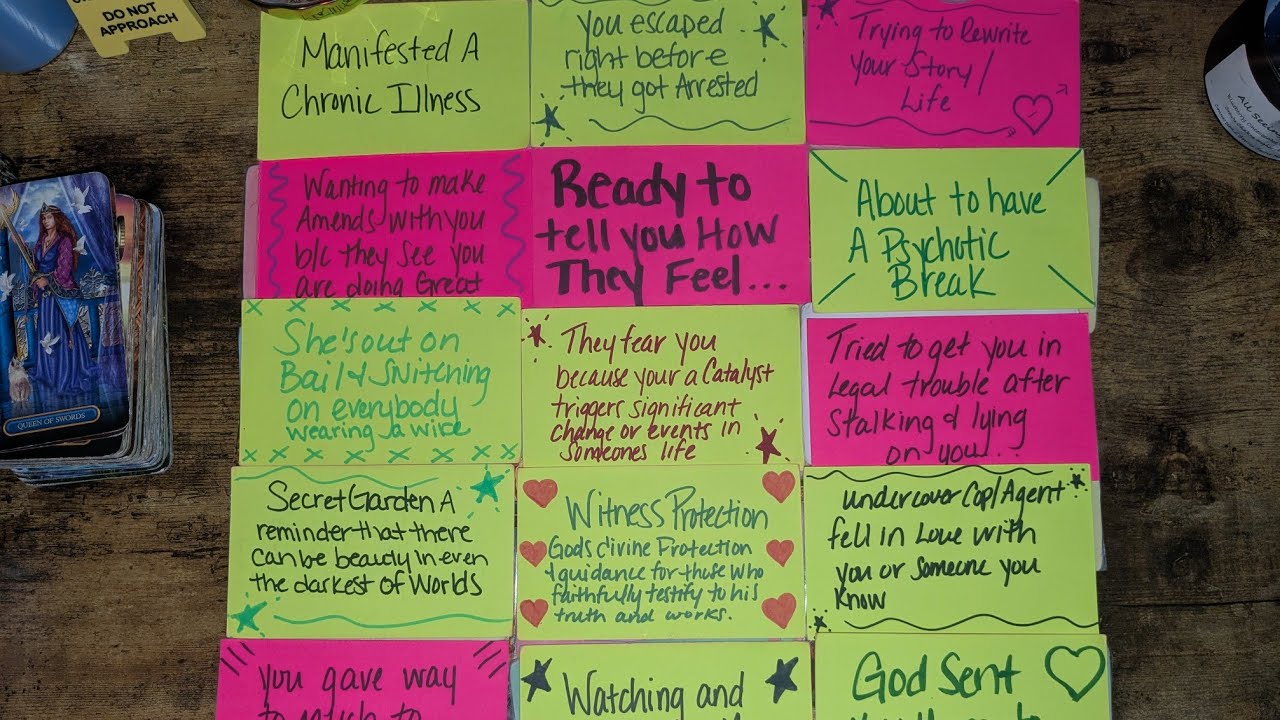 DO NOT
APPROACH
Manifested A
Chronic Illness
you escaped
right before
they got Arrested
Trying to Rewrite
your Story/
Life
Wanting to make
Amends with you
b/c they see you
are doing Great
Ready to
tell you How
They Feel...
About to have
A Psychotic
Break
She's out on
Bail & SNitching
on everybody
wearing a wire
They fear you
because your a Catalyst
triggers significant
change or events in
someones life
Tried to get you in
Legal trouble after
Stalking & lying
on you..
QUEEN OF SWORDS
Secret Garden A
reminder that there
can be beauty in even
the darkest of Worlds
Witness Protection
Gods divine Protection
& guidance for those who
faithfully testify to his
truth and works.
undercover Cop/Agent
fell in Love with
you or Someone you
Know
you gave way
Watching and
God Sent